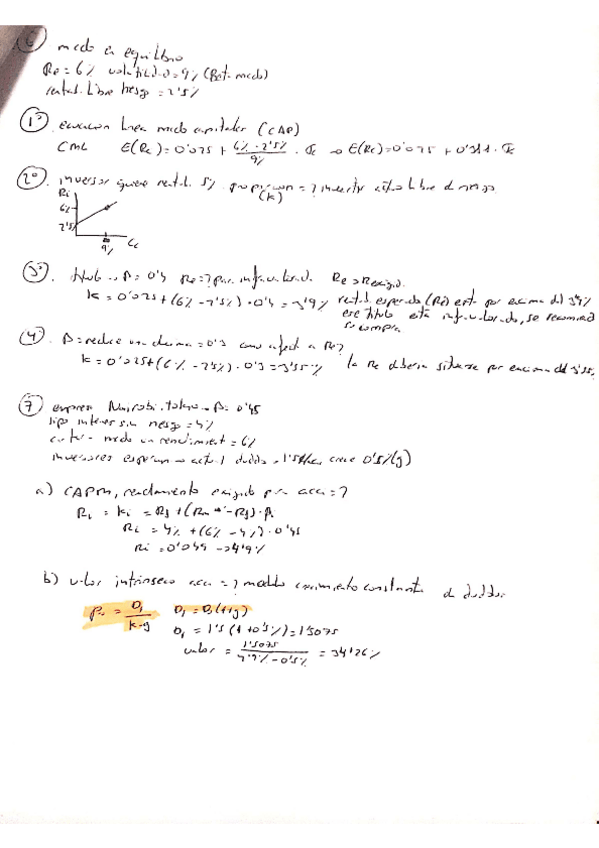 6 mcdo en equilibrio
Re = 6% volatilid-0 = 9% (Ret. mcdo)
rentab. libre riesgo = 2'5%
1º. ecuacion linea mcdo capitales (CAP)
CML E(Rc) = 0'025 + 6% - 2'5% / 9% · σc → E(Rc) = 0'025 + 0'
2º. inversor quiere rentab. 5% proporcion = ? invertir libre de riesgo
(k)
Ri
6%
2'5%
9% σc
3º. titulo β = 0'4 Re = ? para infravalorado. Re > Rexigid.
k = 0'025 + (6% - 2'5%) · 0'4 = 3'9% rentab. esperada (Re) está por encima del 3'9%
ese titulo está infravalorado, se recomienda
su compra
4º. β reduce una decima = 0'3 como afecta a Re?
k = 0'025 + (6% - 2'5%) · 0'3 = 3'55% la Re deberia situarse por encima del 3'55%
7 empresa Nairobi-tokio → β = 0'45
tipo interes sin riesgo = 4%
mcdo un rendimient = 6%
inversores esperan → actual divid. crece 0'5% (g)
a) CAPM, rendimiento exigido por acc = ?
Ri = ki = Rf + (Rm - Rf) · β
Ri = 4% + (6% - 4%) · 0'45
Ri = 0'049 → 4'9%
b) valor intrinseco acc = ? modelo crecimiento constante d divid.
Po = D1 / k-g D1 = D(1+g)
D1 = 1'5 (1 + 0'5%) = 1'5075
valor = 1'5075 / 4'9% - 0'5% = 34'26%